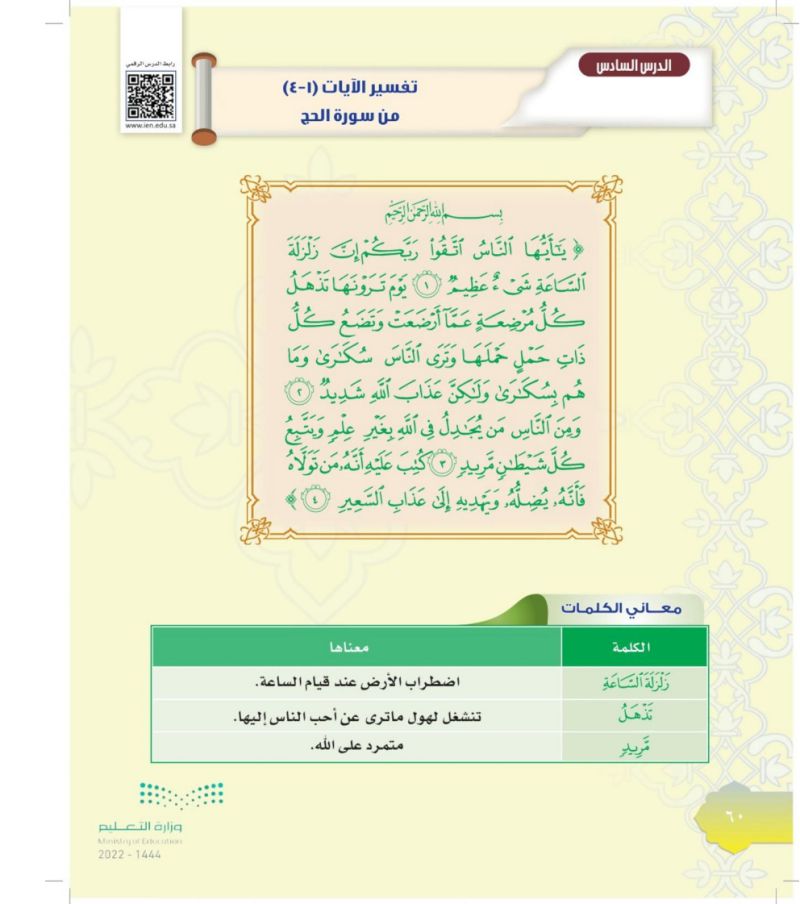 رابط الدرس الرقمي
www.ien.edu.sa
الدرس السادس
تفسير الآيات (١-٤)
من سورة الحج
بِسْمِ اللَّهِ الرَّحْمَٰنِ الرَّحِيمِ
﴿ يَٰٓأَيُّهَا ٱلنَّاسُ ٱتَّقُوا۟ رَبَّكُمْ إِنَّ زَلْزَلَةَ
ٱلسَّاعَةِ شَىْءٌ عَظِيمٌ ١ يَوْمَ تَرَوْنَهَا تَذْهَلُ
كُلُّ مُرْضِعَةٍ عَمَّآ أَرْضَعَتْ وَتَضَعُ كُلُّ
ذَاتِ حَمْلٍ حَمْلَهَا وَتَرَى ٱلنَّاسَ سُكَٰرَىٰ وَمَا
هُم بِسُكَٰرَىٰ وَلَٰكِنَّ عَذَابَ ٱللَّهِ شَدِيدٌ ٢
وَمِنَ ٱلنَّاسِ مَن يُجَٰدِلُ فِى ٱللَّهِ بِغَيْرِ عِلْمٍ وَيَتَّبِعُ
كُلَّ شَيْطَٰنٍ مَّرِيدٍ ٣ كُتِبَ عَلَيْهِ أَنَّهُۥ مَن تَوَلَّاهُ
فَأَنَّهُۥ يُضِلُّهُۥ وَيَهْدِيهِ إِلَىٰ عَذَابِ ٱلسَّعِيرِ ٤ ﴾
معـــاني الكلمـات
الكلمة معناها
زَلْزَلَةَ ٱلسَّاعَةِ اضطراب الأرض عند قيام الساعة.
تَذْهَلُ تنشغل لهول ماترى عن أحب الناس إليها.
مَّرِيدٍ متمرد على الله.
وزارة التعـــليم
Ministry of Education
2022 - 1444
٦٠